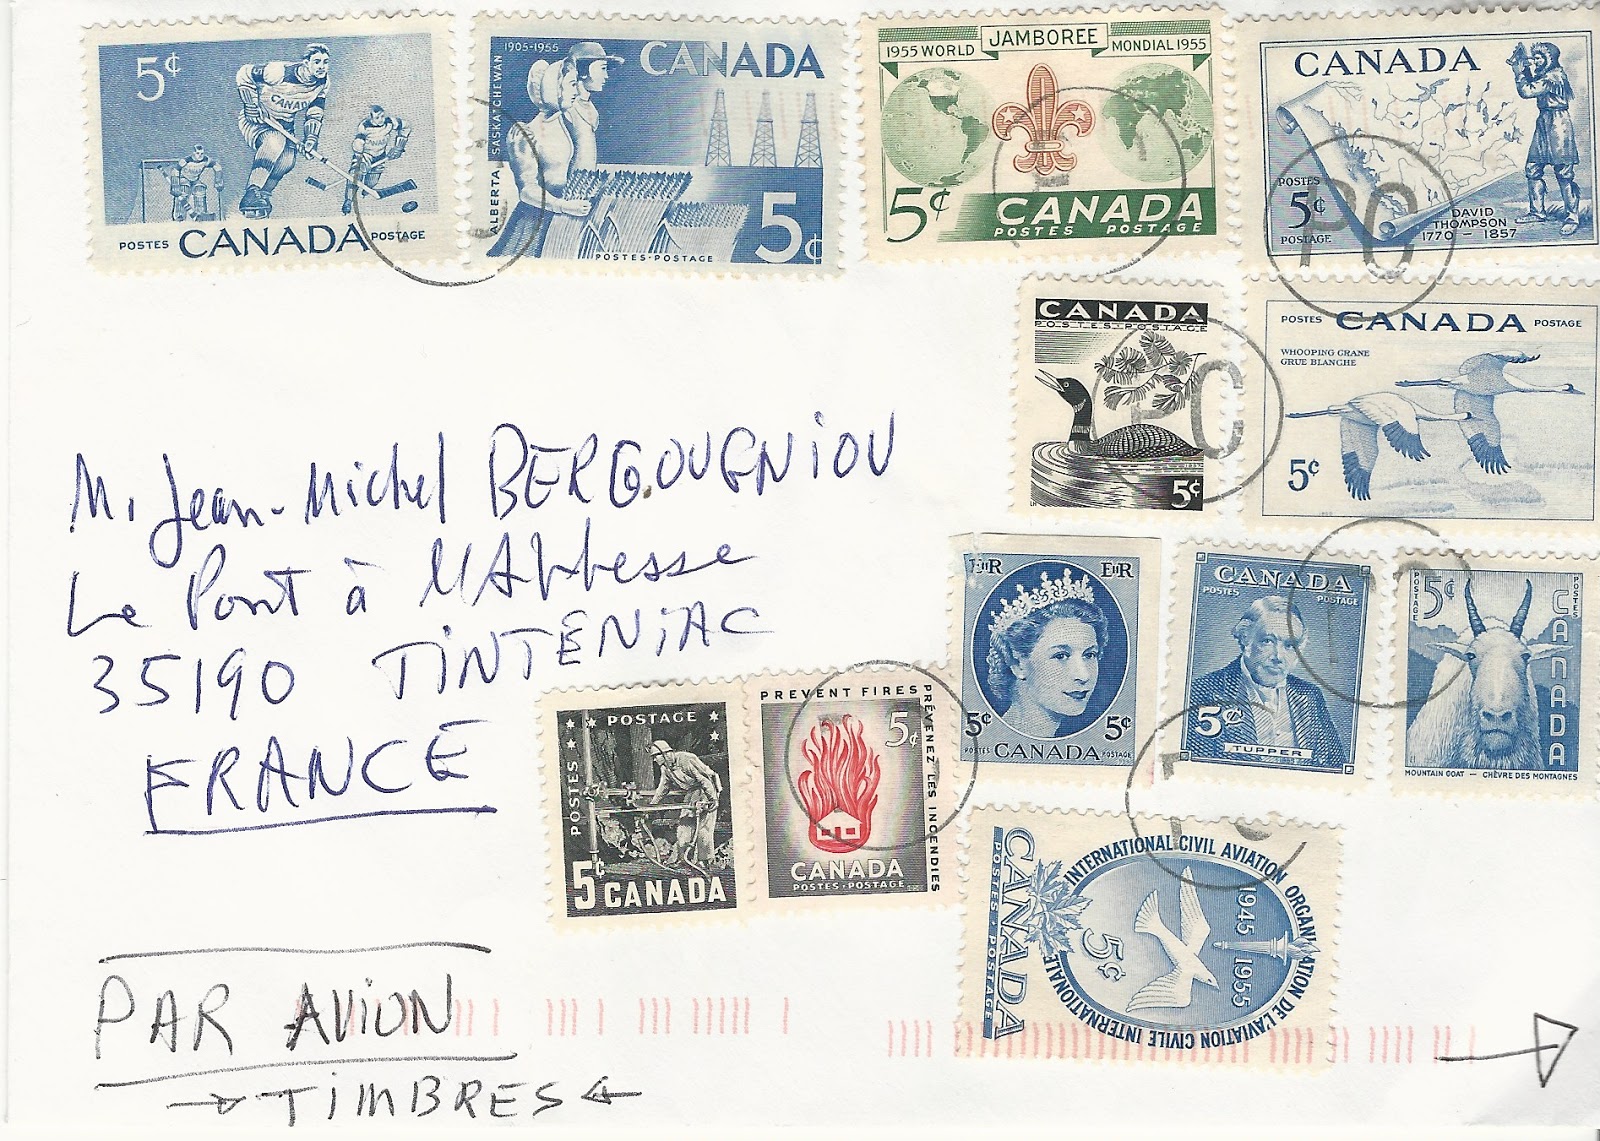 5¢
CANADA
POSTES CANADA POSTAGE
1905-1955
CANADA
ALBERTA, SASKATCHEWAN
5¢
POSTES-POSTAGE
1955 WORLD JAMBOREE MONDIAL 1955
5¢ CANADA
POSTES POSTAGE
CANADA
POSTES
5¢
POSTAGE
DAVID
THOMPSON
1770 - 1857
PC
CANADA
POSTES-POSTAGE
5¢
PC
POSTES CANADA POSTAGE
WHOOPING CRANE
GRUE BLANCHE
5¢
M. Jean-Michel BERGOUGNIOU
Le Pont à l'Abbesse
35190 TINTÉNIAC
FRANCE
EIIR EIIR
5¢ 5¢
POSTES CANADA POSTAGE
CANADA
POSTES POSTAGE
5¢
TUPPER
POSTAGE 5¢ POSTES
CANADA
MOUNTAIN GOAT — CHÈVRE DES MONTAGNES
POSTAGE
POSTES
5¢ CANADA
PREVENT FIRES
PRÉVENEZ LES INCENDIES
5¢
CANADA
POSTES-POSTAGE
CANADA
POSTES-POSTAGE
INTERNATIONAL CIVIL AVIATION ORGANIZATION DE L'AVIATION CIVILE INTERNATIONALE
1945 1955
5¢
PAR AVION
TIMBRES